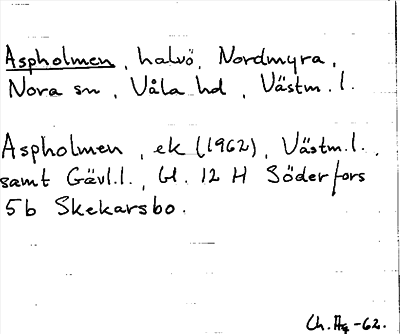 Aspholmen, halvö, Nordmyra,
Nora sn, Våla hd, Västm. l.
Aspholmen, ek (1962), Västm. l.,
samt Gävl. l., Gl. 12 H Söderfors
5b Skekarsbo.
Ch. -62.